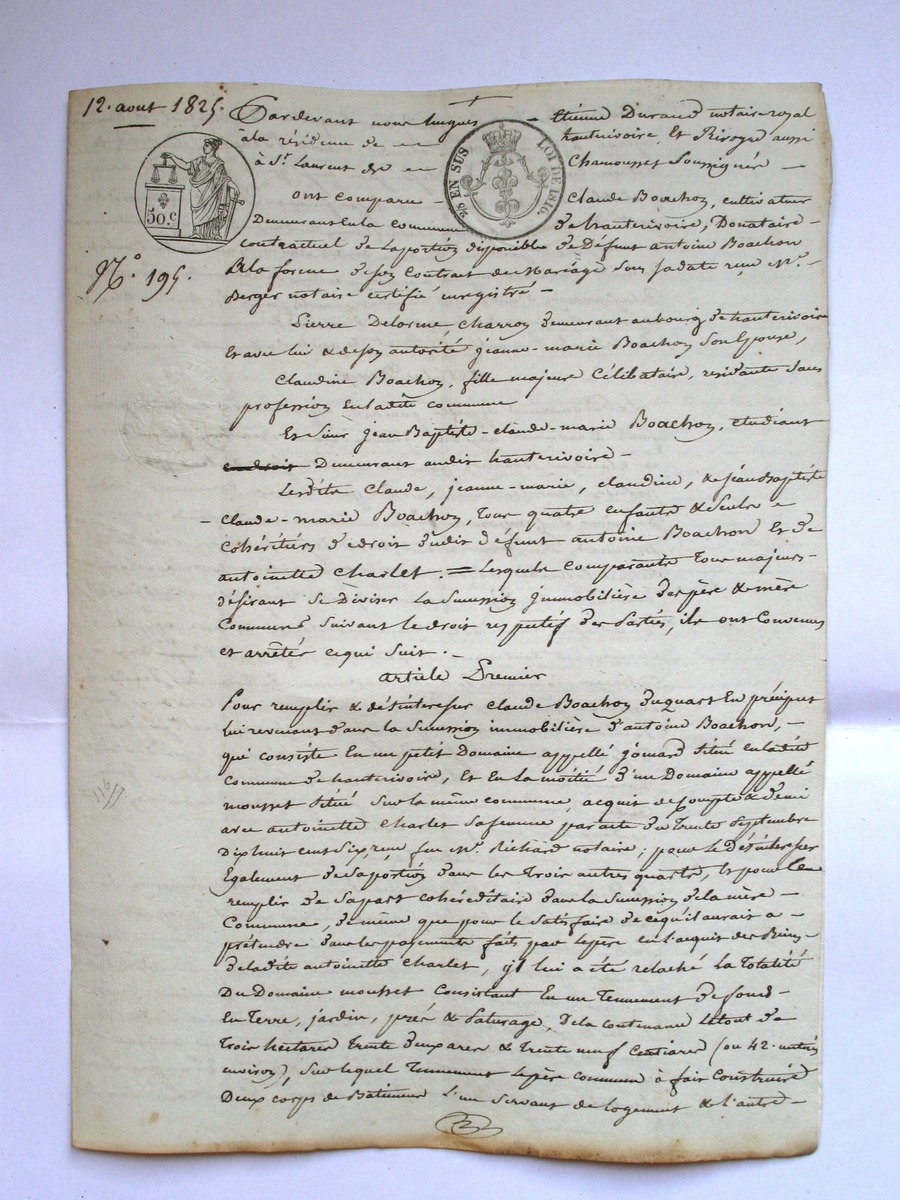 12. aout 1825.
Pardevant nous hugues - Etienne Durand notaire royal
à la résidence de hauterivoire Et Rivoyre aussi
à St. Laurent de Chamousset Soussignés -
50. c
2/5 EN SUS LOI DE 1816.
ont comparu - Claude Boachon, cultivateur
Demeurant en la commune de hauterivoire, Donataire -
contractuel de la portion disponible de Défunt antoine Boachon
N.° 195.
à la forme de son Contrat de Mariage sous sa date reçu Me.
Berger notaire certifié enregistré -
Pierre Delorme, Charron demeurant au bourg de hauterivoire
Et avec lui & de son autorité jeanne-marie Boachon son Epouse,
Claudine Boachon, fille majeure Célibataire, residante sans
profession en ladite commune
Et Sieur jean Baptiste-claude-marie Boachon, étudiant
en droit Demeurant audit hauterivoire -
Lesdits Claude, jeanne-marie, claudine, & jean Baptiste
- claude-marie Boachon, Tous quatre enfants & seuls
cohéritiers de droit dudit défunt antoine Boachon Et de
antoinette Charlet. = Lesquels comparants Tous majeurs -
désirant se Diviser La Succession jmmobilière des père & mère
Communs Suivant le droit respectif des Parties, ils ont Convenus
et arrêtés ce qui Suit. -
article Premier
Pour remplir & désintéresser Claude Boachon du quart En préciput
lui revenant dans la Succession immobilière d'antoine Boachon, -
qui consiste En un petit Domaine appellé jomard situé en ladite
commune de hauterivoire, Et en La moitié d'un Domaine appellé
mousset situé Sur la même commune, acquis de Compte & demi
avec antoinette Charlet sa femme par acte du Trente Septembre
Dix huit cent Six, reçu feu Me. Richard notaire; pour le Désintéresser
Egalement de sa portion dans les Trois autres quarts, Et pour le
remplir de Sa part cohéréditaire dans la Succession de la mère -
Commune, de même que pour le Satisfaire de ce qu'il aurait a -
prétendre dans les payements faits par le père en l'acquit des Biens -
de ladite antoinette Charlet, jl lui a été relaché La Totalité
Du Domaine mousset Consistant En un Tennement de fonds -
En Terre, jardin, prés & Paturage, De la contenance Le tout de
Trois hectares Trente deux ares & Trente neuf Centiares (ou 42. metrés
environ), Sur lequel Tennement le père commun à fait Construire
Deux corps de Bâtiment L'un Servant de Logement & l'autre -